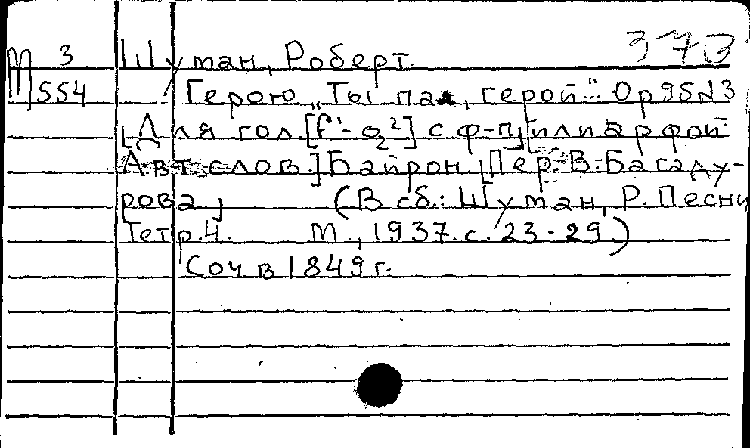 373
М 3 Шуман, Роберт.
554 Герою „Ты пал, герой“. Op 95 N3
[Для гол. [f¹-g²] с ф-п [или арфой
Авт. слов.] Байрон [Пер. В. Багаду-
рова] (В сб.: Шуман, Р. Песни
Тетр. 4. М., 1937. с. 23-29.)
Соч. в 1849 г.